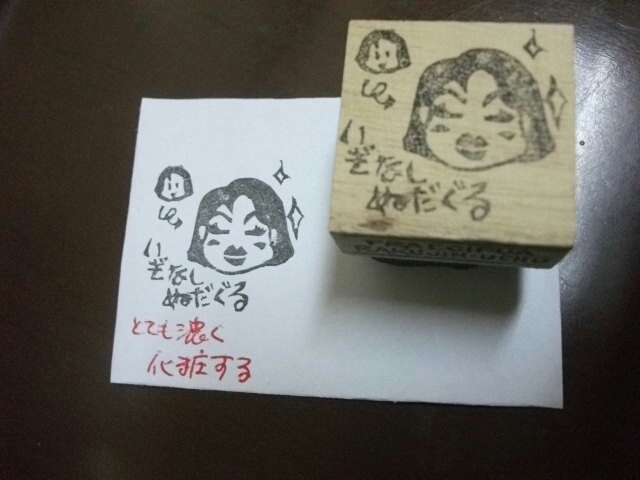 い
ぞなし
ぬだぐる
い
ぞなし
ぬだぐる
とても濃く
化粧する